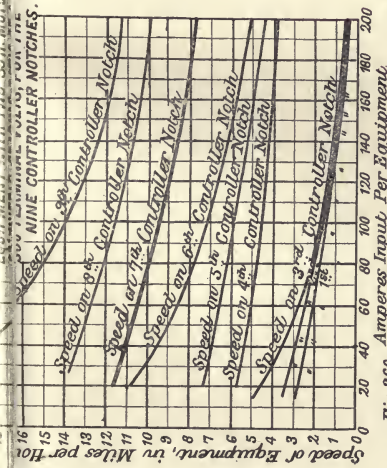 TERMINAL VOLTS, FOR THE
NINE CONTROLLER NOTCHES.
Speed on 9th Controller Notch
Speed on 8th Controller Notch
Speed on 7th Controller Notch
Speed on 6th Controller Notch
Speed on 5th Controller Notch
Speed on 4th Controller Notch
Speed on 3rd Controller Notch
" " 2nd " "
" " 1st " "
Speed of Equipment, in Miles per Hou
16
15
14
13
12
11
10
9
8
7
6
5
4
3
2
1
0
0 20 40 60 80 100 120 140 160 180 200
Amperes Input, Per Equipment.
Fig.